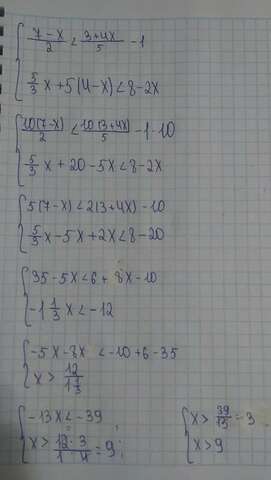 7-x/2 < 3+4x/5 -1
5/3 x+5(4-x)<8-2x
10(7-x)/2 < 10(3+4x)/5 -1·10
5/3 x+20-5x<8-2x
5(7-x)<2(3+4x)-10
5/3 x-5x+2x<8-20
35-5x<6+8x-10
-1 1/3 x<-12
-5x-8x <-10+6-35
x > 12/1 1/3
-13x<-39
x > 12·3/1·4 =9;
x > 39/13 =3
x>9